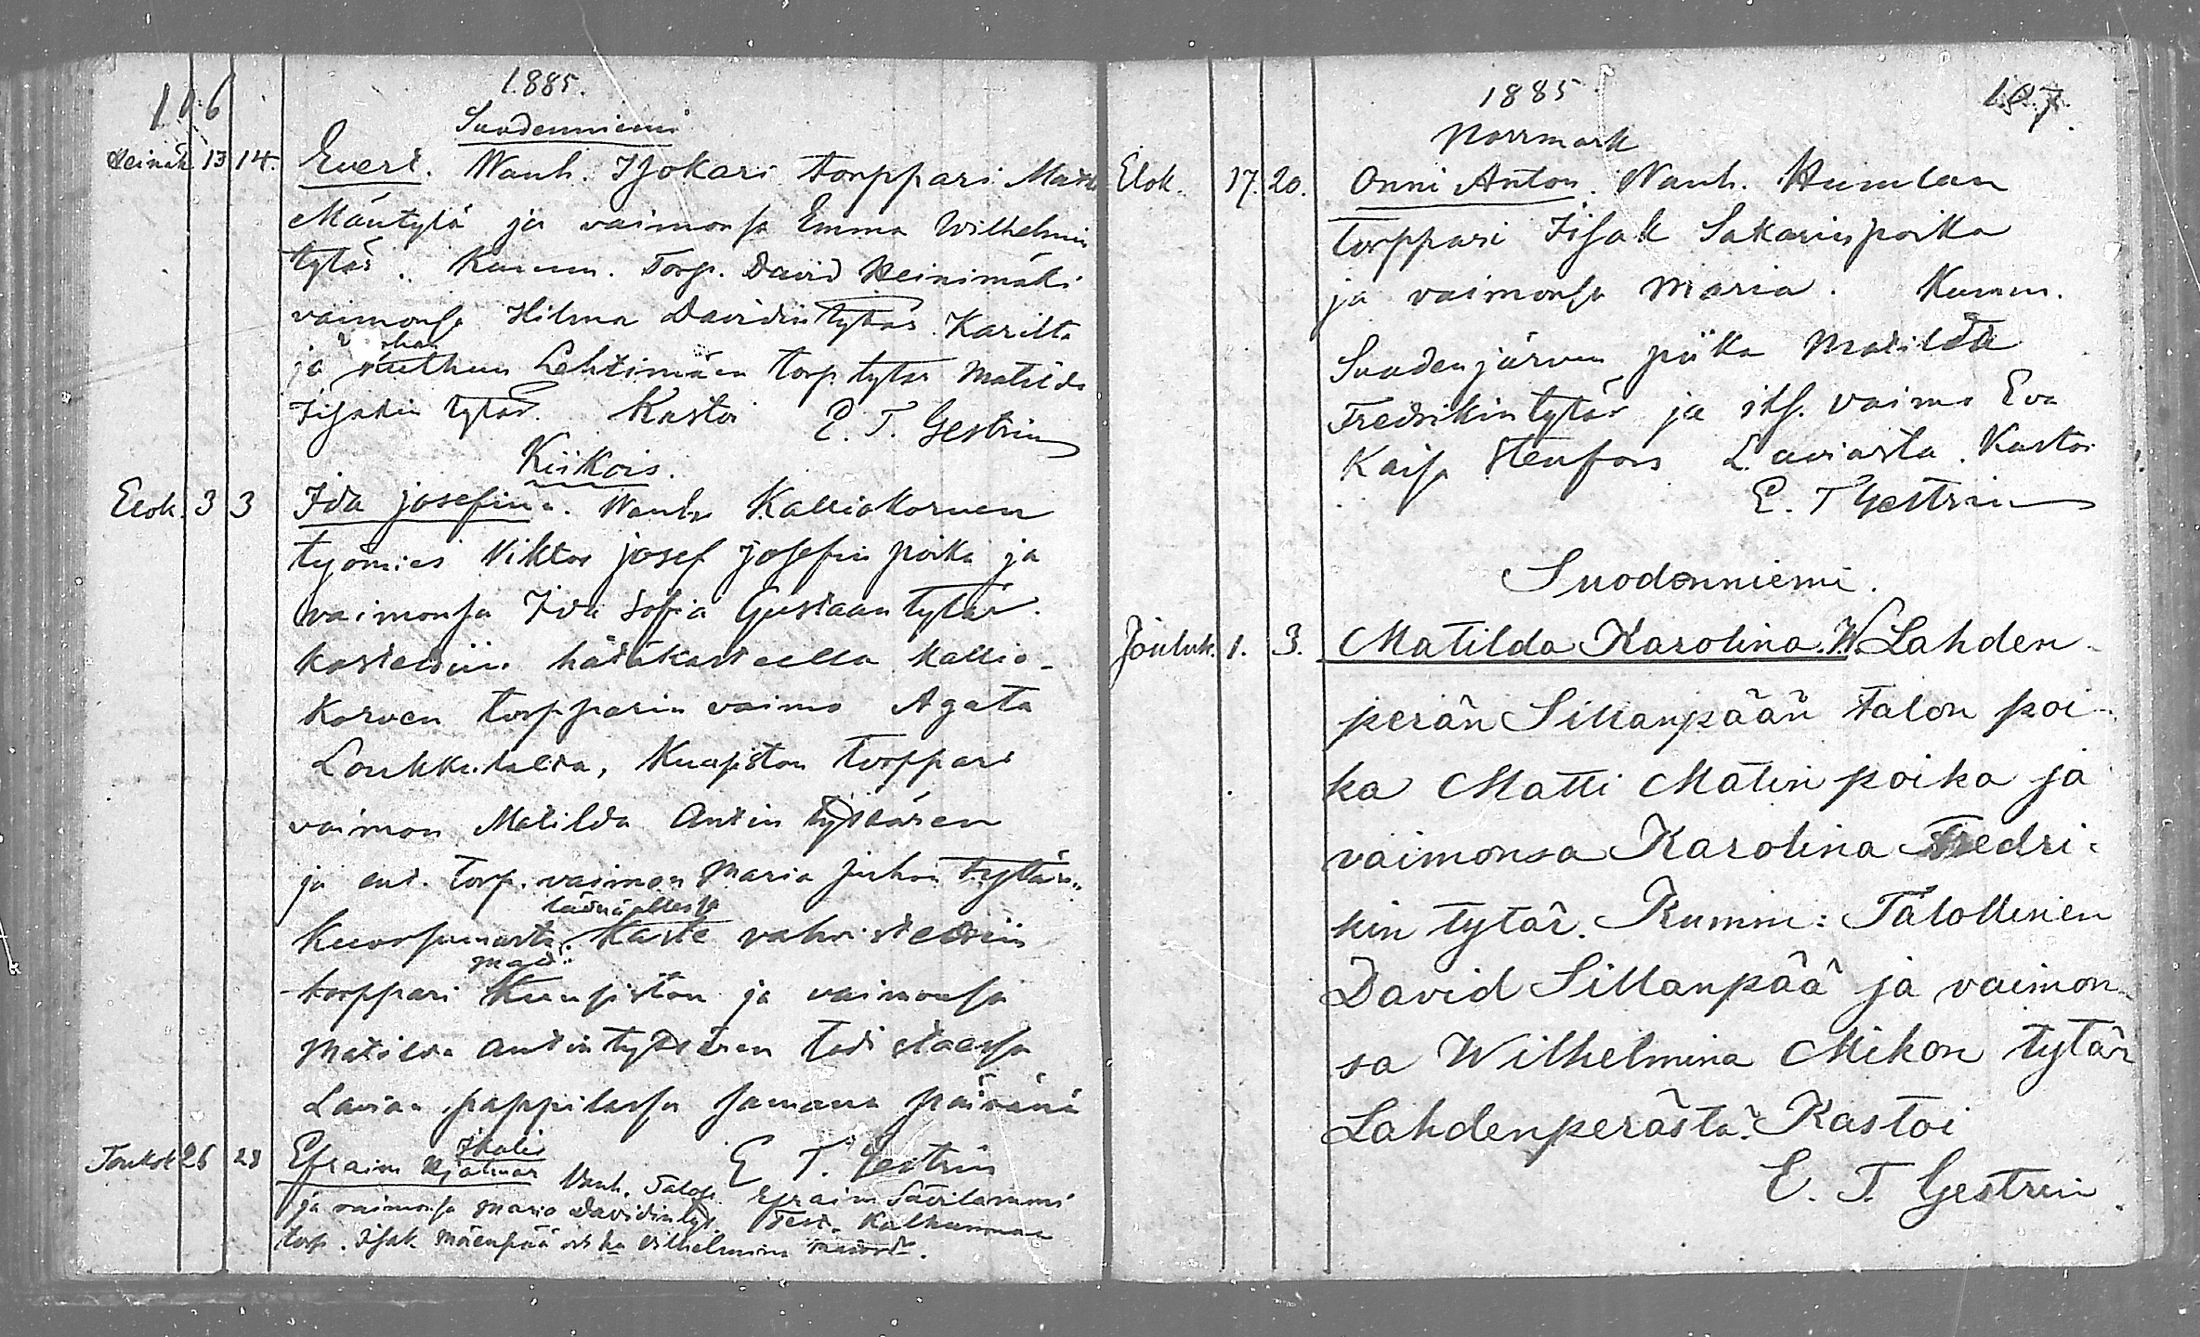 106
1885.
Suodenniemi
Heinäk 13 14. Evert. Wanh. Isokari torppari Matti
Mäntylä ja vaimonsa Emma Wilhelmin
tytär. Kumm. Torp. David Heinimäki
vaimonsa Hilma Davidin tytär Karilta
ja vanhan Lehtimäen torp. tytär Matilda
Iisakin tytär. Kastoi E. T. Gestrin
Kiikois.
Elok. 3 3 Ida Josefina. Wanh. Kalliokorven
työmies Viktor Josef Josefin poika ja
vaimonsa Ida Sofia Gustaan tytär.
kastettiin hätäkasteella Kallio-
korven torpparin vaimo Agata
Loukkulalta, Kuusiston torppari
vaimon Matilda Antin tyttären
ja ent. torp. vaimon Maria Juhon tytär
läsnäollessa
Kaste vahvistettiin
torppari Kuusiston ja vaimonsa
Matilda Antintyttären todistaessa
Lavian pappilassa samana päivänä
E. T. Gestrin
Ikalis
Toukok 26 28 Efraim Hjalmar Vanh. Talop. Efraim Särilammi
ja vaimonsa Maria Davidintyt. Test.
torp. Isak Mäenpää Vilhelmina
107.
1885
Norrmark
Elok. 17. 20. Onni Anton. Wanh. Humlan
torppari Iisak Sakarinpoika
ja vaimonsa Maria. Kumm.
Suodenjärven piika Matilda
Fredrikintytär ja its. vaimo Eva
Kaisa Stenfors Laviasta. Kastoi
E. T Gestrin
Suodenniemi.
Jouluk. 1. 3. Matilda Karolina. W. Lahden-
perän Sillanpään talon poi-
ka Matti Matin poika ja
vaimonsa Karolina Fredri-
kin tytär. Kumm: Talollinen
David Sillanpää ja vaimon-
sa Wilhelmina Mikon tytär
Lahdenperästä. Kastoi
E. T. Gestrin.